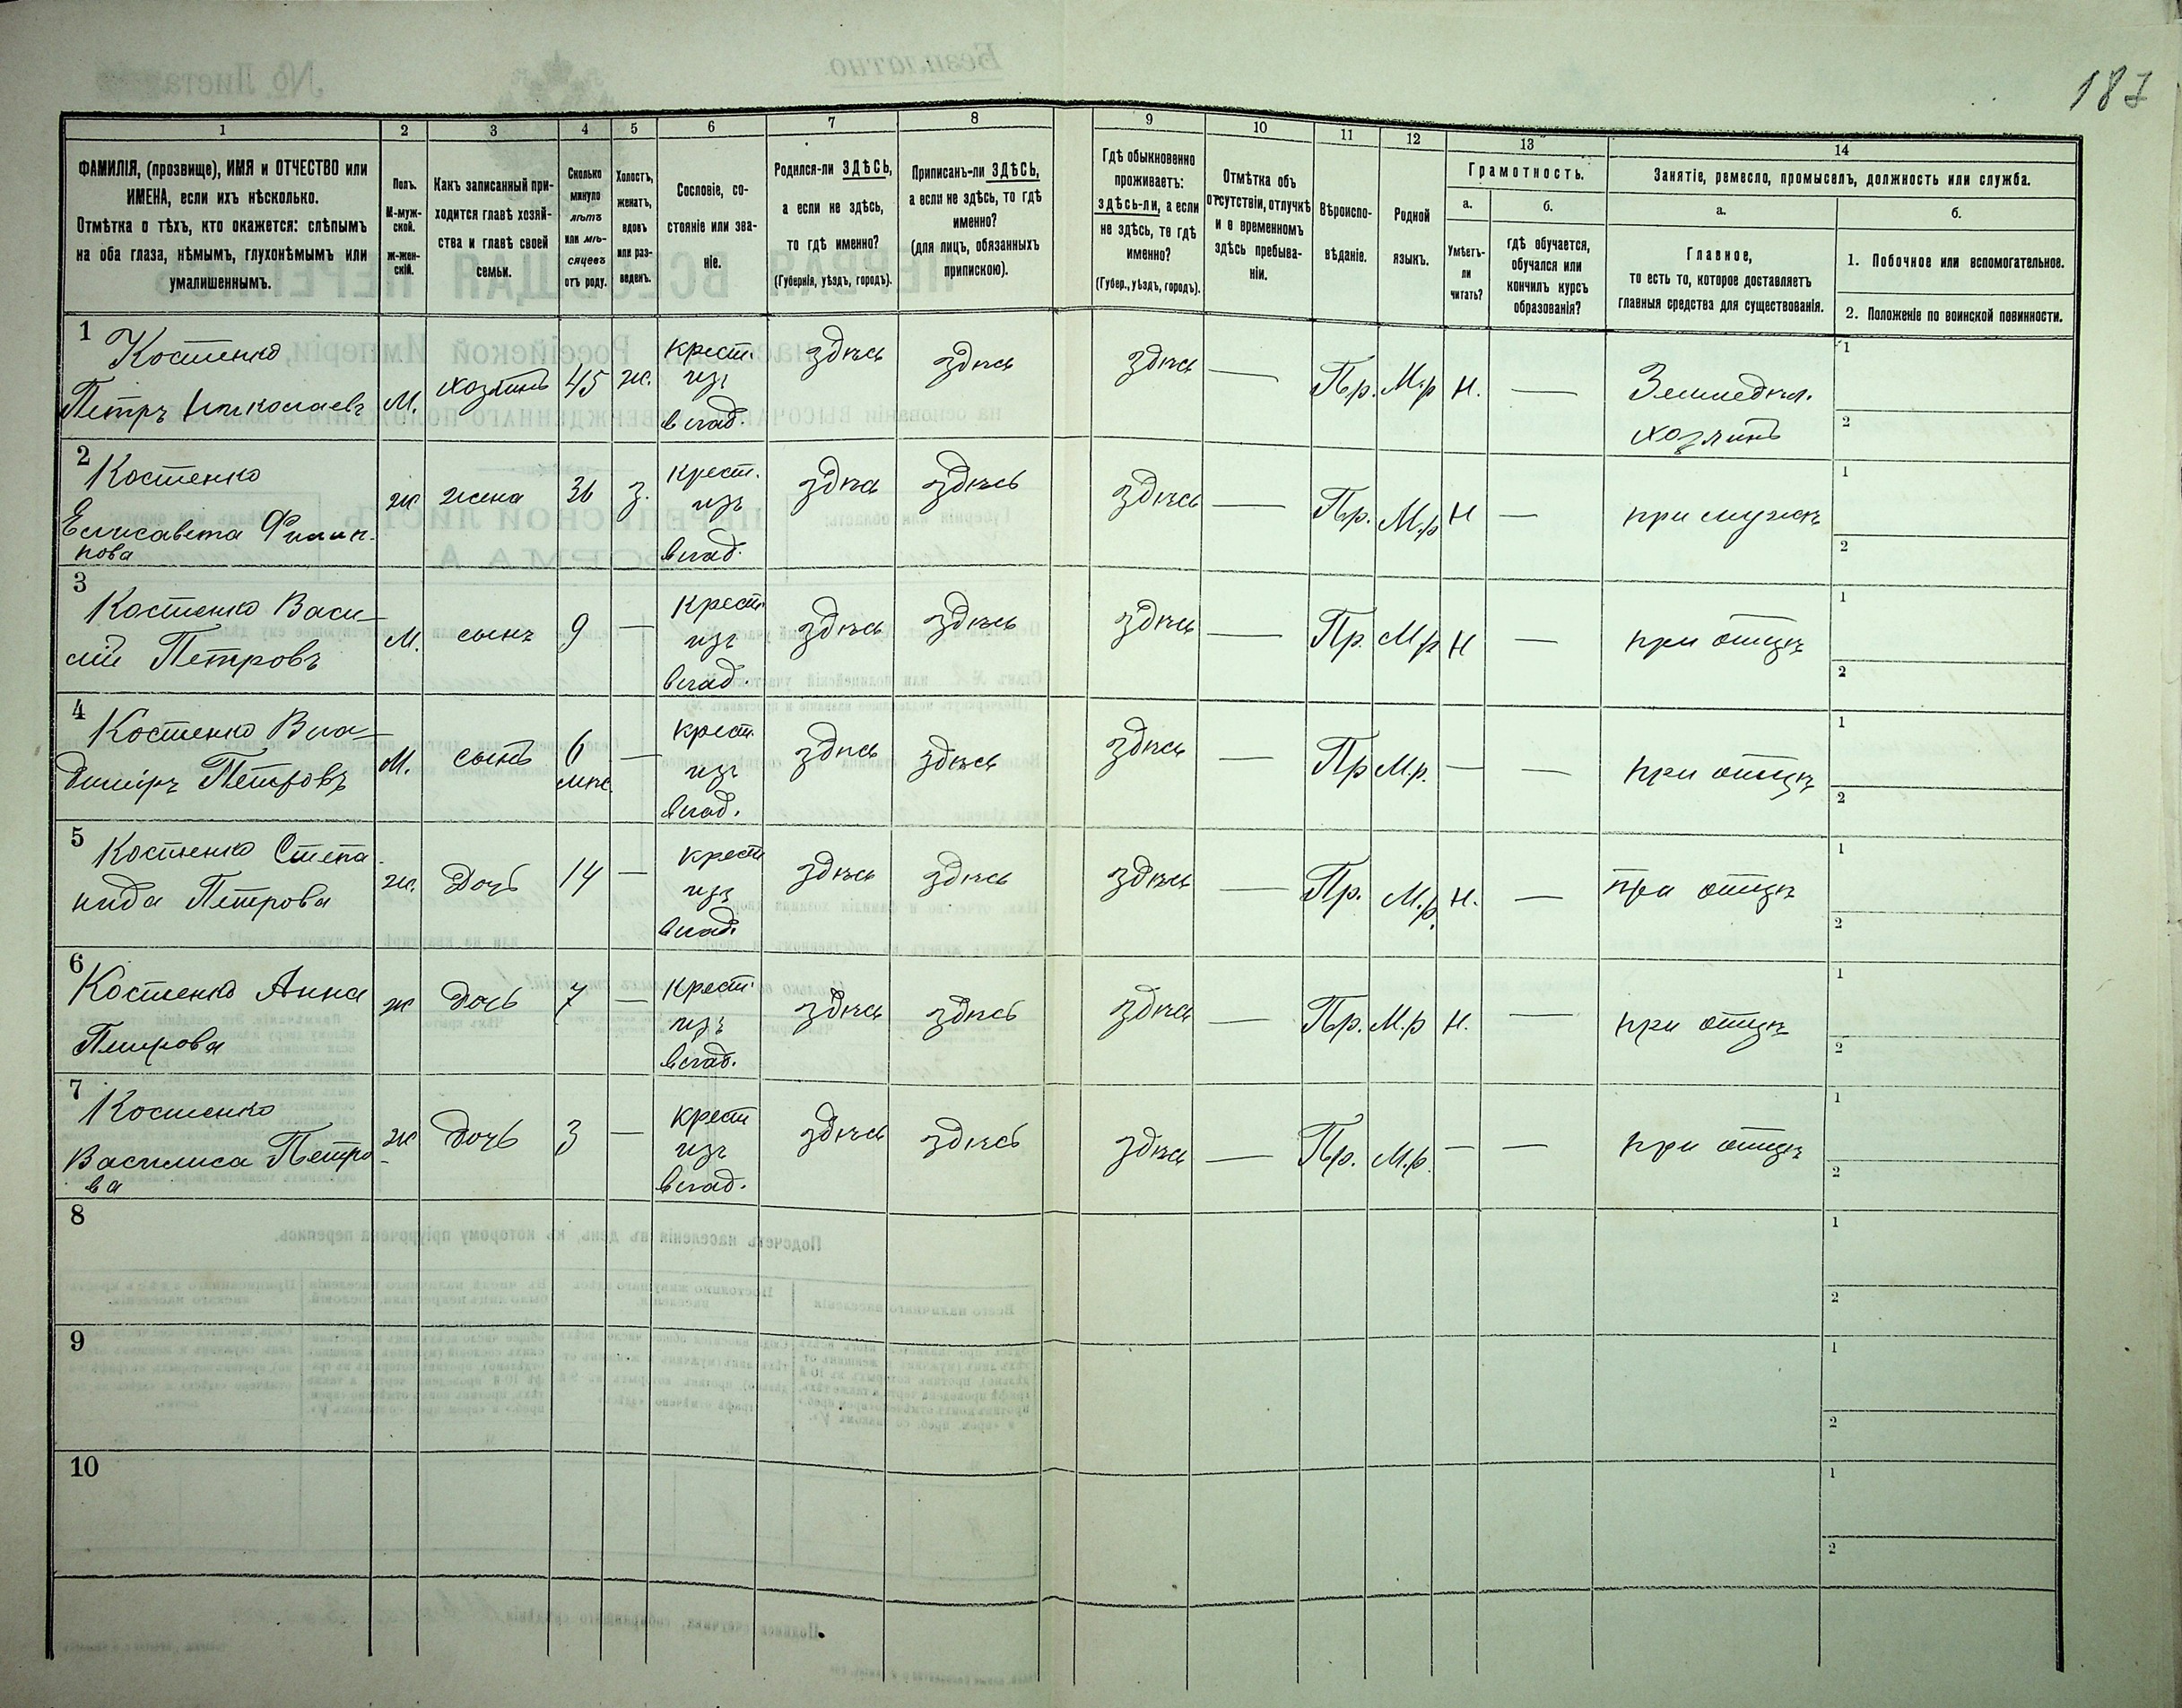 187
1
2
3
4
5
6
7
8
9
10
11
12
13
14
ФАМИЛІЯ, (прозвище), ИМЯ и ОТЧЕСТВО или
ИМЕНА, если ихъ нѣсколько.
Отмѣтка о тѣхъ, кто окажется: слѣпымъ
на оба глаза, нѣмымъ, глухонѣмымъ или
умалишеннымъ.
Полъ.
М-муж-
ской.
Ж-жен-
скій.
Какъ записанный при-
ходится главѣ хозяй-
ства и главѣ своей
семьи.
Сколько
минуло
лѣтъ
или мѣ-
сяцевъ
отъ роду.
Холостъ,
женатъ,
вдовъ
или раз-
веденъ.
Сословіе, со-
стояніе или зва-
ніе.
Родился-ли ЗДѢСЬ,
а если не здѣсь,
то гдѣ именно?
(Губернія, уѣздъ, городъ).
Приписанъ-ли ЗДѢСЬ,
а если не здѣсь, то гдѣ
именно?
(для лицъ, обязанныхъ
припискою).
Гдѣ обыкновенно
проживаетъ:
здѣсь-ли, а если
не здѣсь, то гдѣ
именно?
(Губер., уѣздъ, городъ).
Отмѣтка объ
отсутствіи, отлучкѣ
и о временномъ
здѣсь пребыва-
ніи.
Вѣроиспо-
вѣданіе.
Родной
языкъ.
Грамотность.
а.
Умѣетъ-
ли
читать?
б.
гдѣ обучается,
обучался или
кончилъ курсъ
образованія?
Занятіе, ремесло, промыселъ, должность или служба.
а.
Главное,
то есть то, которое доставляетъ
главныя средства для существованія.
б.
1. Побочное или вспомогательное.
2. Положеніе по воинской повинности.
1
Костенко
Петръ Николаевъ
М.
хозяинъ
45
ж.
крест.
изъ
влад.
здѣсь
здѣсь
здѣсь
—
Пр.
М.р
н.
—
Земледѣл.
хозяинъ
1
2
2
Костенко
Елисавета Филип-
пова
ж
жена
36
з.
крест.
изъ
влад.
здѣсь
здѣсь
здѣсь
—
Пр.
М.р
н
—
при мужѣ
1
2
3
Костенко Васи-
лій Петровъ
М.
сынъ
9
—
крест.
изъ
влад.
здѣсь
здѣсь
здѣсь
—
Пр.
М.р
н
—
при отцѣ
1
2
4
Костенко Вла-
диміръ Петровъ
М.
сынъ
6
мѣс.
—
крест.
изъ
влад.
здѣсь
здѣсь
здѣсь
—
Пр
М.р.
—
—
при отцѣ
1
2
5
Костенко Степа-
нида Петрова
ж.
Дочь
14
—
крест
изъ
влад.
здѣсь
здѣсь
здѣсь
—
Пр.
М.р.
н.
—
при отцѣ
1
2
6
Костенко Анна
Петрова
ж
Дочь
7
—
крест.
изъ
влад.
здѣсь
здѣсь
здѣсь
—
Пр.
М.р
н.
—
при отцѣ
1
2
7
Костенко
Василиса Петро-
ва
ж
Дочь
3
—
крест
изъ
влад.
здѣсь
здѣсь
здѣсь
—
Пр.
М.р.
—
—
при отцѣ
1
2
8
1
2
9
1
2
10
1
2